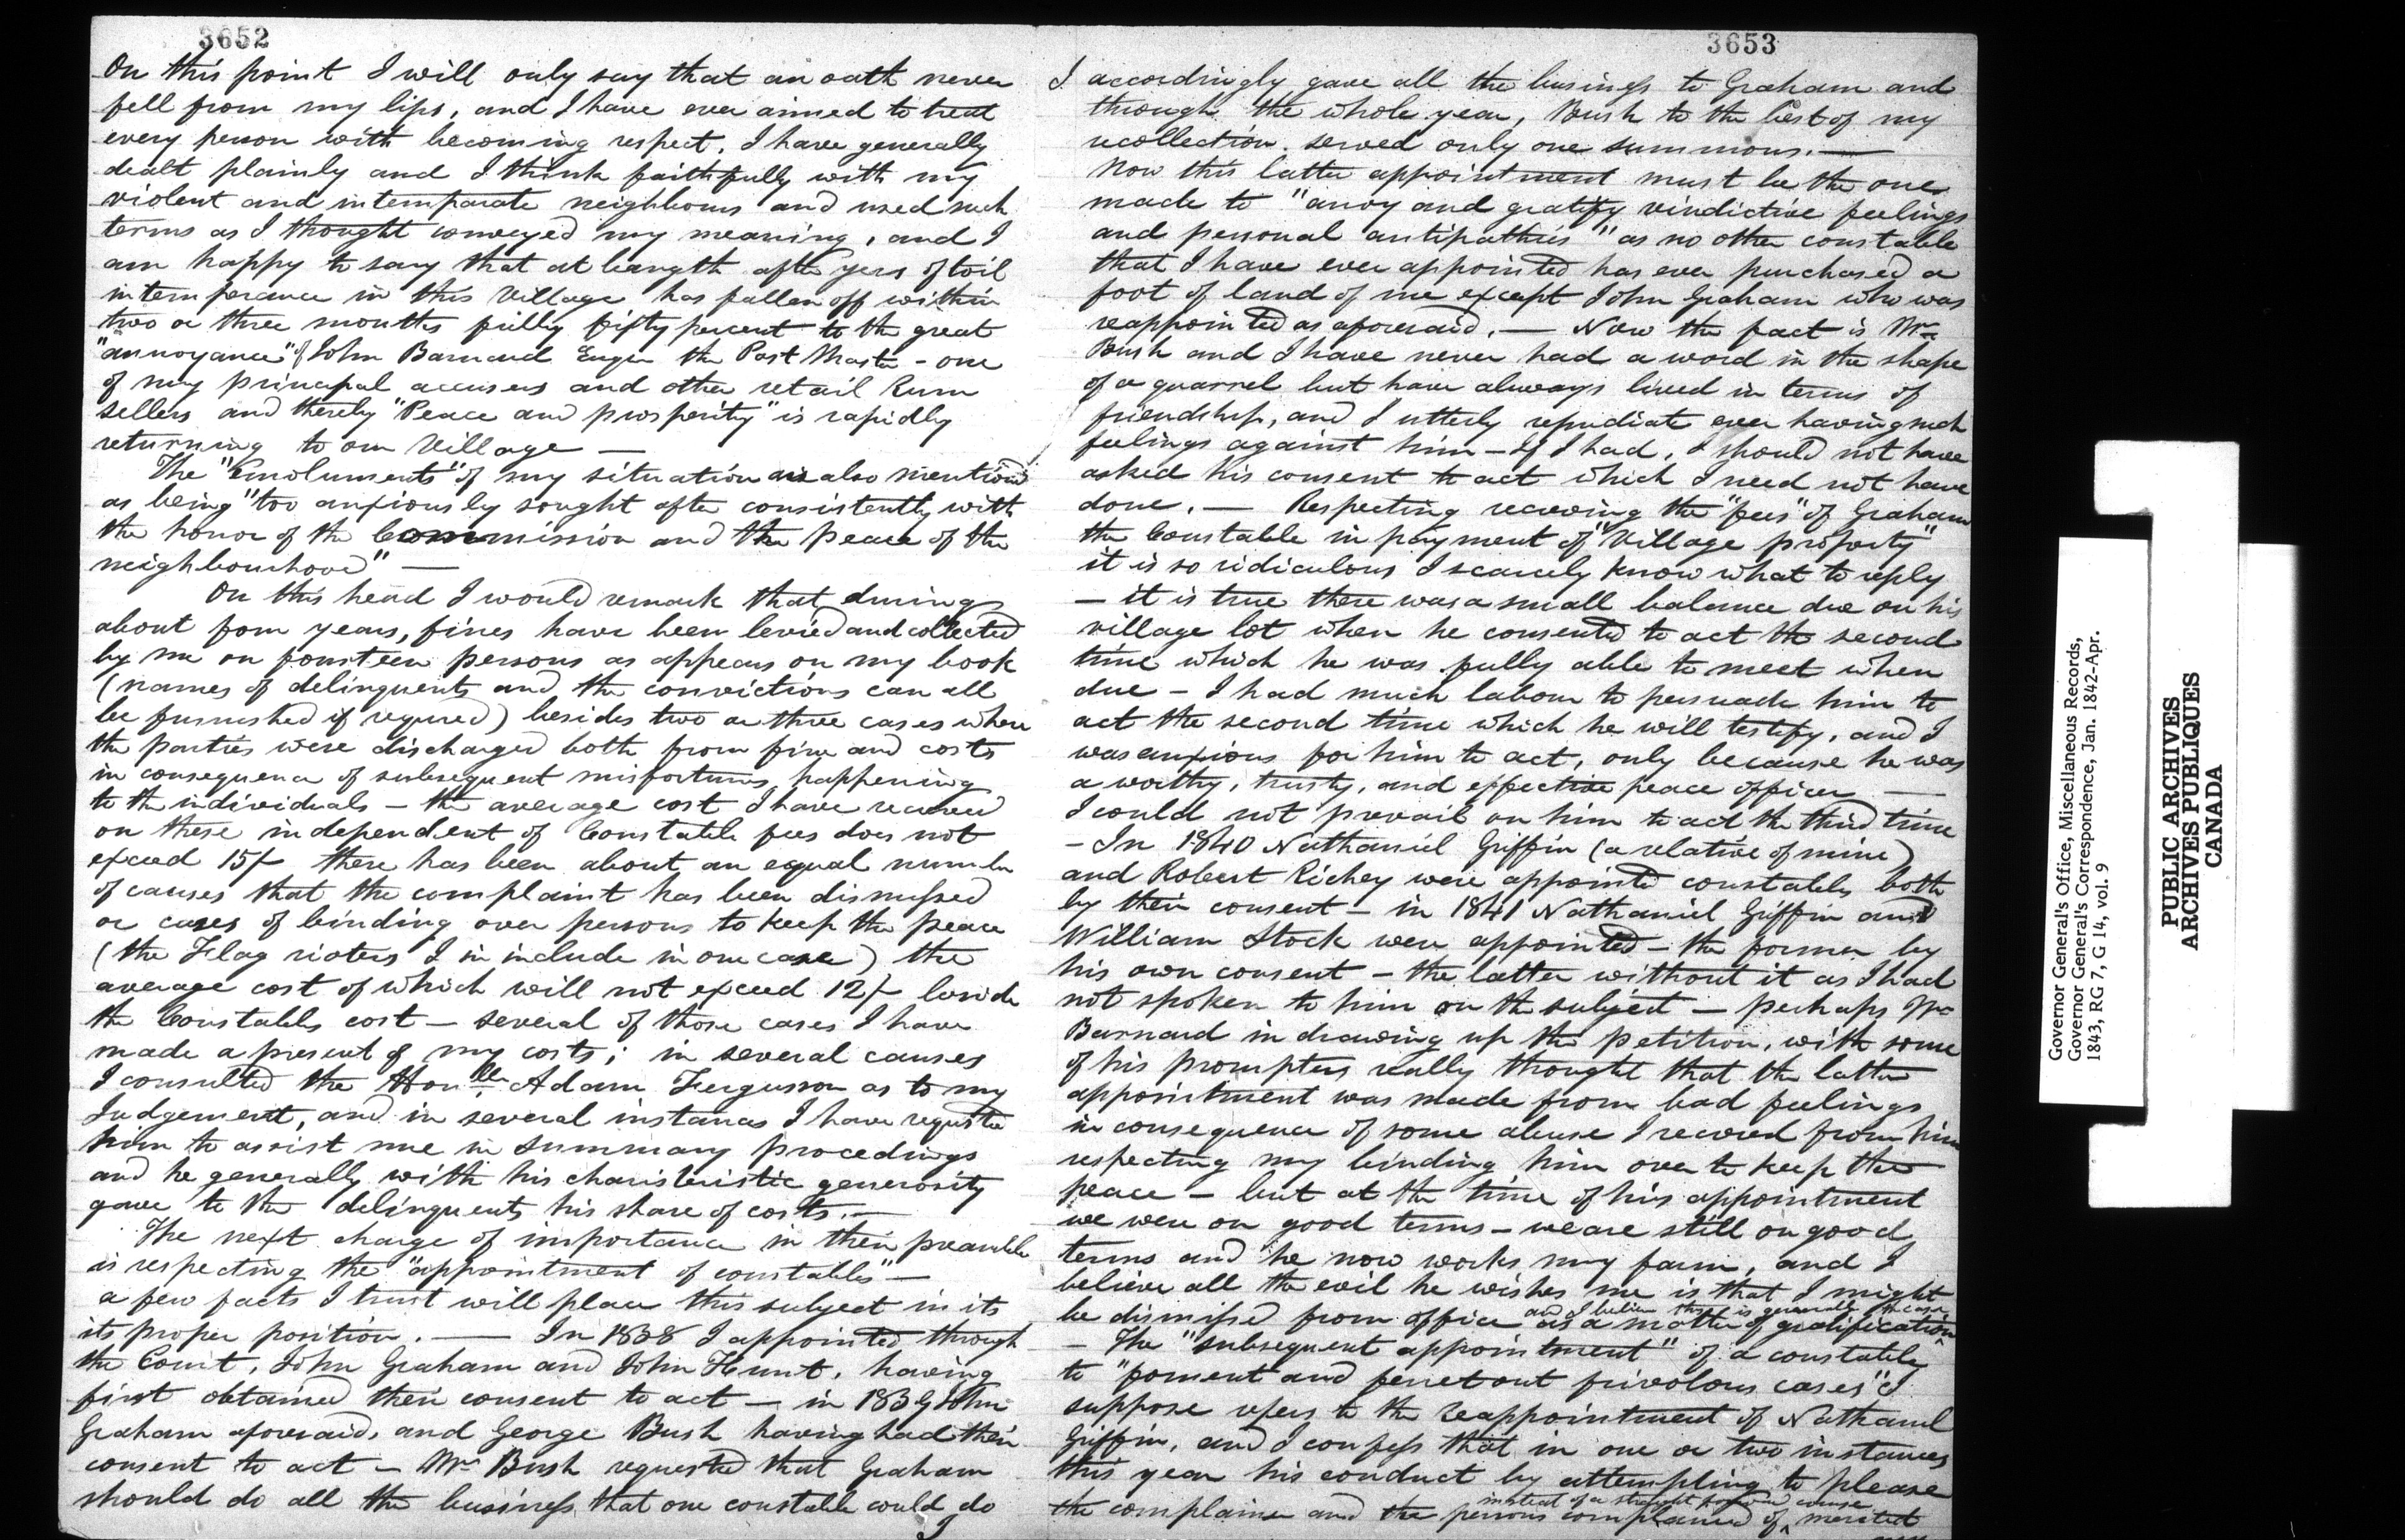 3652
On this point I will only say that an oath never
fell from my lips, and I have ever aimed to treat
every person with becoming respect. I have generally
dealt plainly and I think faithfully with my
violent and intemparate neighbours and used such
terms as I thought conveyed my meaning, and I
am happy to say that at length after yers of toil
intemperance in this Village has fallen off within
two or three months fully fifty percent to the great
"annoyance" of John Barnard Eager the Post Master - one
of my principal accusers and other retail Rum
sellers and thereby "Peace and prosperity" is rapidly
returning to our Village —
The "Emoluments" of my situation are also mentioned
as being "too anxiously sought after consistently with
the honor of the Commission and the peace of the
neighbourhood" —
On this head I would remark that during
about four years, fines have been levied and collected
by me on fourteen persons as appears on my book
(names of delinquents and the convictions can all
be furnished if requred) besides two or three cases where
the parties were discharged both from fine and costs
in consequence of subsequent misfortunes happening
to the individuals — the average cost I have received
on these independent of Constable fees does not
exceed 15/- there has been about an equal number
of causes that the complaint has been dismissed
or cases of binding over persons to keep the peace
(the Flag rioters I in include in one case) the
average cost of which will not exceed 12/- beside
the Constables cost — several of those cases I have
made a present of my costs; in several causes
I consulted the Honble. Adam Fergusson as to my
Judgement, and in several instances I have requested
him to assist me in summary procedings
and he generally with his charisteristic generosity
gave to the delinquents his share of costs. —
The next charge of importance in their preamble
is respecting the "appointment of constables" —
a few facts I trust will place this subject in its
its proper position. — In 1838 I appointed through
the Court, John Graham and John Hunt, having
first obtained their consent to act — in 1839 John
Graham aforesaid, and George Bush having had their
consent to act — Mr Bush requested that Graham
should do all the business that one constable could do
I
3653
I accordingly gave all the business to Graham and
through the whole year, Bush to the best of my
recollection served only one summons. —
Now this latter appointment must be the one
made to "anoy and gratify vindictive feelings
and personal antipathies" as no other constable
that I have ever appointed has ever purchased a
foot of land of me except John Graham who was
reappointed as aforesaid. — Now the fact is Mr
Bush and I have never had a word in the shape
of a quarrel but have always lived in terms of
friendship, and I utterly repudiate ever having such
feelings against him — If I had, I should not have
asked his consent to act which I need not have
done. — Respecting receiving the "fees" of Graham
the Constable in payment of "Village property"
it is so ridiculous I scarcely know what to reply
— it is true there was a small balance due on his
village lot when he consented to act the second
time which he was fully able to meet when
due — I had much labour to persuade him to
act the second time which he will testify, and I
was anxious for him to act, only because he was
a worthy, trusty, and effective peace officer —
I could not prevail on him to act the third time
— In 1840 Nathaniel Griffin (a relative of mine)
and Robert Richey were appointed constables both
by their consent — in 1841 Nathaniel Griffin and
William Stock were appointed — the former by
his own consent — the latter without it as I had
not spoken to him on the subject — perhaps Mr
Barnard in drawing up the petition, with some
of his prompters really thought that the latter
appointment was made from bad feelings
in consequence of some abuse I received from him
respecting my binding him over to keep the
peace — but at the time of his appointment
we were on good terms — we are still on good
terms and he now works my farm, and I
believe all the evil he wishes me is that I might
be dismissed from office as a matter of gratification
and I believe this is generally the case
— The "subsequent appointment" of a constable
to "foment and ferret out frivolous cases" I
suppose refers to the reappointment of Nathanel
Griffin, and I confess that in one or two instances
this year his conduct by attempting to please
instead of a straight forward course
the complainer and the persons complained of merited
Governor General's Office, Miscellaneous Records,
Governor General's Correspondence, Jan. 1842-Apr.
1843, RG 7, G 14, vol. 9
PUBLIC ARCHIVES
ARCHIVES PUBLIQUES
CANADA